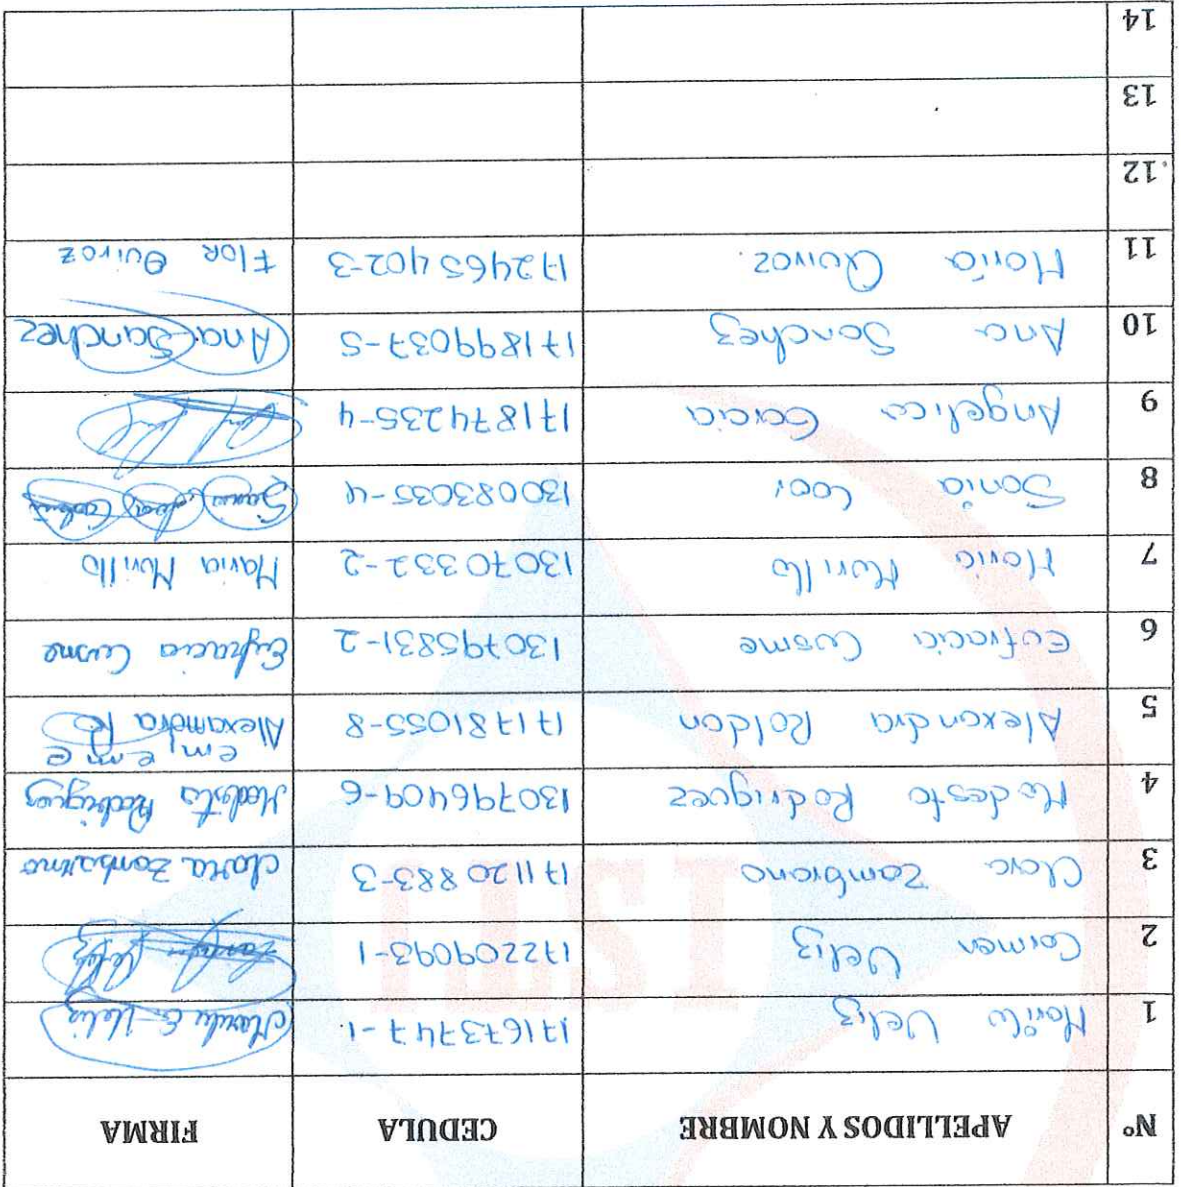 N° APELLIDOS Y NOMBRE CEDULA FIRMA
1 Marilu Veliz 171673747-1. Marilu E. Veliz
2 Carmen Veliz 172209093-1 Veliz
3 Clara Zambrano 171120883-3 Clara Zambrano
4 Modesto Rodriguez 130796409-6 Modesto Rodriguez
5 Alexandra Roldan 171781055-8 Alexandra R
6 Eufracia Cusme 130795831-2 Eufracia Cusme
7 Maria Murillo 13070332-2 Maria Murillo
8 Sonia 130083035-4
9 Angelica Garcia 171874235-4
10 Ana Sanchez 171899037-5 Ana Sanchez
11 Maria Quiroz. 172465402-3 Flor Quiroz
12
13
14
ITSI